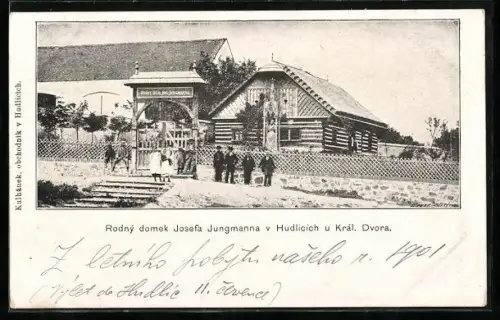 Kulhánek, obchodník v Hudlicích.
Rodný domek Josefa Jungmanna v Hudlicích u Král. Dvora.
Z letního pobytu našeho r. 1901
(Výlet do Hudlic 11. července)